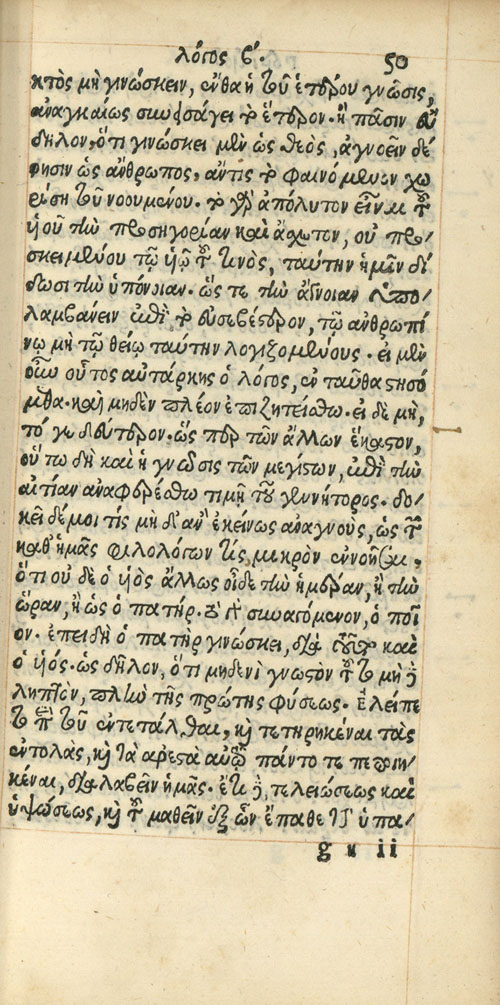 λόγος ϛ´. 50
κτὸς μὴ γινώσκειν, ἔνθα ἡ τοῦ ἑτέρου γνῶσις,
ἀναγκαίως συνεισάγει τὸ ἕτερον. ἢ πᾶσιν εὔ
δηλον, ὅτι γινώσκει μὲν ὡς θεὸς, ἀγνοεῖν δέ
φησιν ὡς ἄνθρωπος, ἄντις τὸ φαινόμενον χω
ρίσῃ τοῦ νοουμένου. τὸ γὰρ ἀπόλυτον εἶναι τοῦ
υἱοῦ τὴν προσηγορίαν καὶ ἄσχετον, οὐ προσ-
κειμένου τῷ υἱῷ τοῦ τινὸς, ταύτην ἡμῖν δί
δωσι τὴν ὑπόνοιαν. ὥς τε τὴν ἄγνοιαν ὑπο-
λαμβάνειν ἐπὶ τὸ εὐσεβέστερον, τῷ ἀνθρωπί
νῳ μὴ τῷ θείῳ ταύτην λογιζομένους. εἰ μὲν
οὖν οὗτος αὐτάρκης ὁ λόγος, ἐν ταῦθα στησό
μεθα. καὶ μηδὲν πλέον ἐπιζητείσθω. εἰ δὲ μὴ,
τό γε δεύτερον. ὥς περ τῶν ἄλλων ἕκαστον,
οὕτω δὴ καὶ ἡ γνῶσις τῶν μεγίστων, ἐπὶ τὴν
αἰτίαν ἀναφερέσθω τιμῇ τοῦ γεννήτορος. δο-
κεῖ δέ μοι τίς μὴ δ' ἂν ἐκείνως ἀναγνοὺς, ὡς τῶν
καθ' ἡμᾶς φιλολόγων τίς, μικρὸν ἐννοῆσαι,
ὅτι οὐ δὲ ὁ υἱὸς ἄλλως οἶδε τὴν ἡμέραν, ἢ τὴν
ὥραν, ἢ ὡς ὁ πατήρ. τὸ γὰρ συναγόμενον, ὁ ποῖ
ον. ἐπειδὴ ὁ πατὴρ γινώσκει, διὰ τοῦτο καὶ
ὁ υἱός. ὡς δῆλον, ὅτι μηδενὶ γνωστὸν τοῦτο μὴ δὲ
ληπτὸν, πλὴν τῆς πρώτης φύσεως. Ἐλείπε
το περὶ τοῦ ἐντετάλθαι, καὶ τετηρηκέναι τὰς
ἐντολὰς, καὶ τὰ ἀρεστὰ αὐτῷ πάντο τε πεποιη-
κέναι, διαλαβεῖν ἡμᾶς. ἔτι δὲ, τελειώσεως καὶ
ὑψώσεως, καὶ τοῦ μαθεῖν ἐξ ὧν ἔπαθε τὴν ὑπα-
g ii